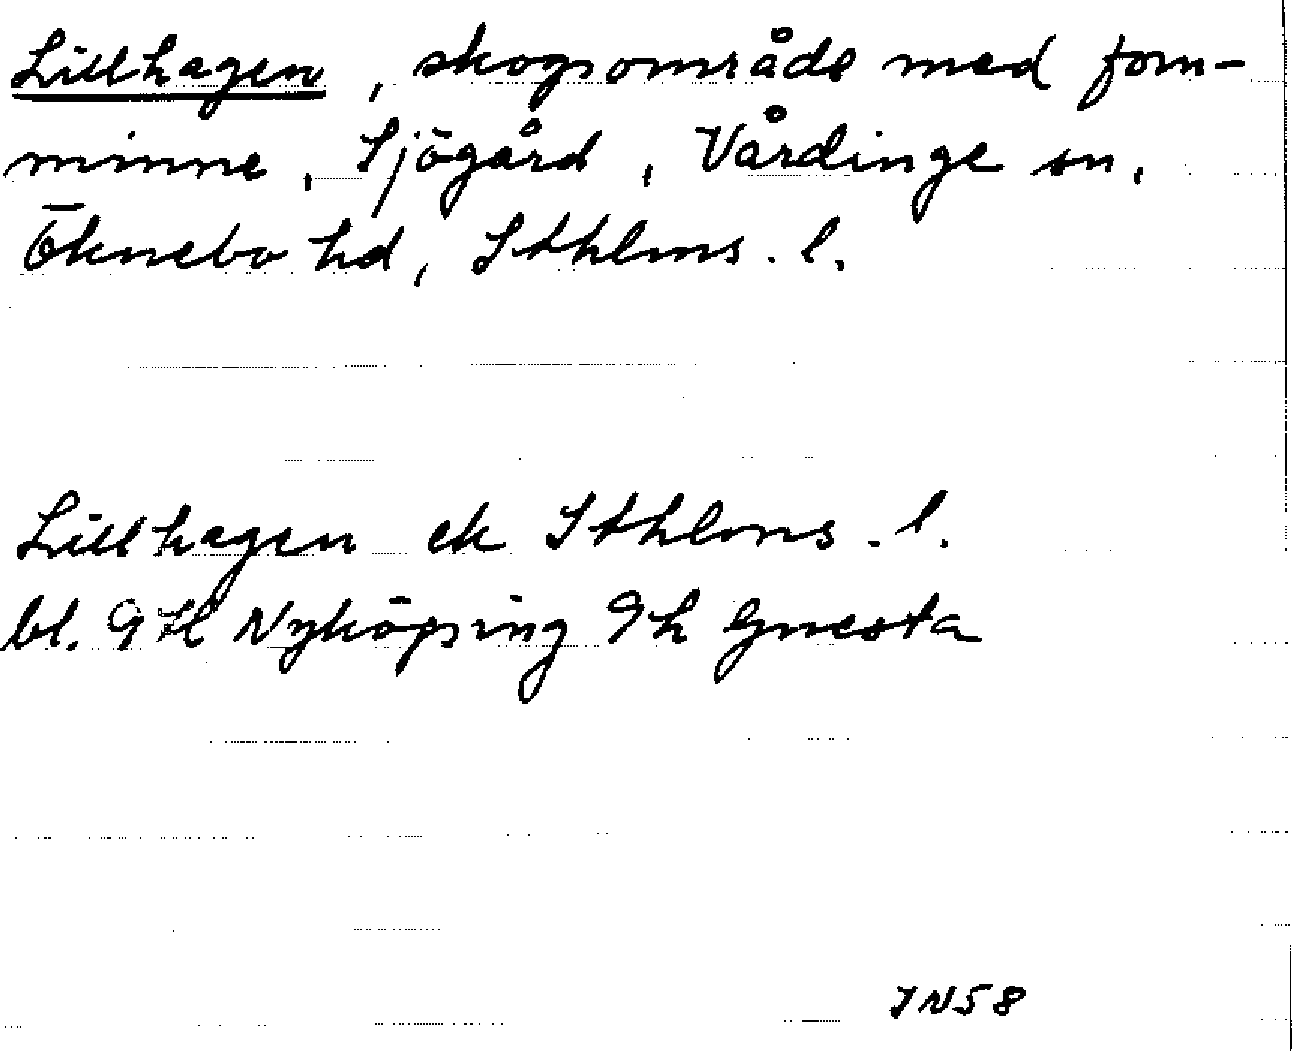 Lillhagen, skogsområde med forn-
minne, Sjögård, Vårdinge sn,
Öknebo hd, Sthlms. l.
Lillhagen ek Sthlms. l.
bl. 9H Nyköping 9h Gnesta
JN58